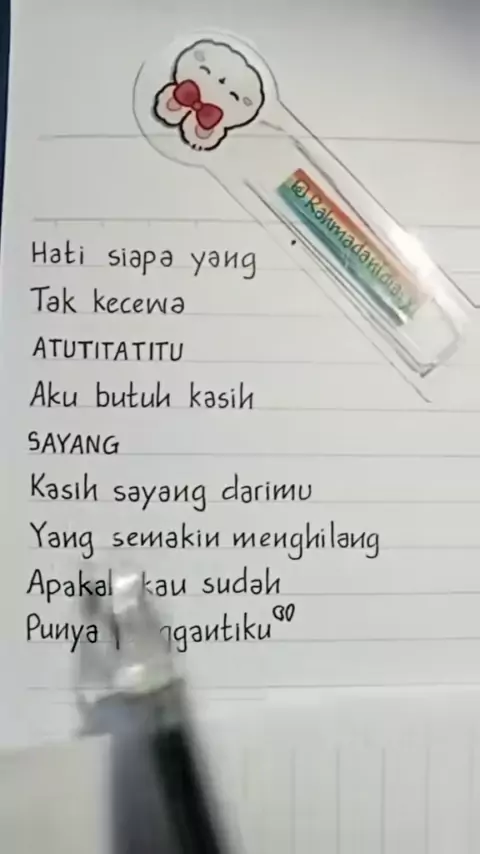 @Rahmadanidiary
Hati siapa yang
Tak kecewa
ATUTITATITU
Aku butuh kasih
SAYANG
Kasih sayang darimu
Yang semakin menghilang
kau sudah
Punya